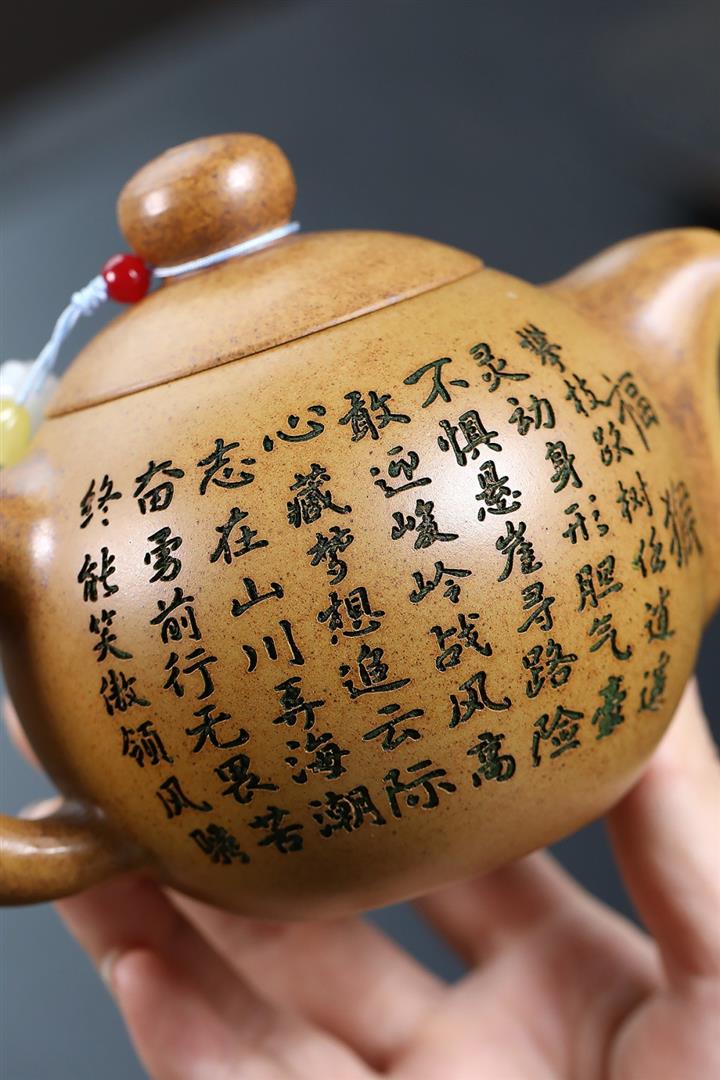 福猴
攀枝跃树任逍遥
灵动身形胆气豪
不惧悬崖寻路险
敢迎峻岭战风高
心藏梦想追云际
志在山川弄海潮
奋勇前行无畏苦
终能笑傲领风骚